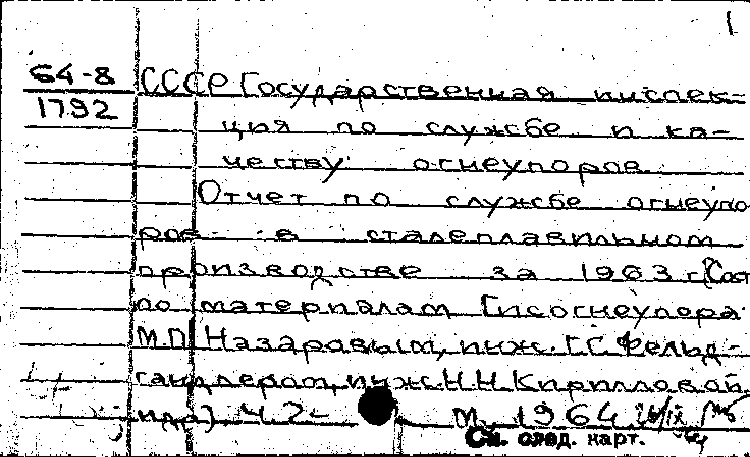 1
64-8 СССР Государственная инспек-
1792 ция по службе и ка-
честву огнеупоров.
Отчет по службе огнеупо
ров в сталеплавильном
производстве за 1963 г. [Сост
по материалам Гисогнеупора
М.П. Назаравым, инж. Г.Г. Фельд-
гандлером, инж. Н.Н. Кирилловой,
и др.] Ч. 2- М., 1964
См. след. карт.